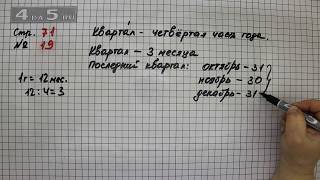 4 на 5.ru
Стр. 71
№ 19
Квартал - четвёртая часть года.
Квартал - 3 месяца
Последний квартал: октябрь - 31
ноябрь - 30
декабрь - 31
1г = 12 мес.
12 : 4 = 3